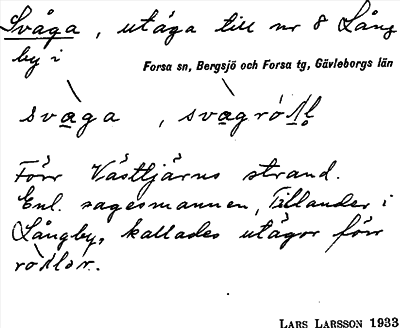 Svåga, utäga till nr 8 Lång
by i
Forsa sn, Bergsjö och Forsa tg, Gävleborgs län
svàga, svàgró
Förr Västtjärns strand.
Enl. sagesmannen, Tillander i
Långby, kallades utägor förr
LARS LARSSON 1933